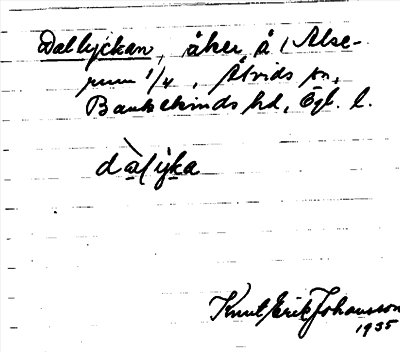 Dallyckan, åker å 1 Alse-
rum 1/4, Åtvids sn,
Bankekinds hd, Ögl. l.
dàlyka
Knut Erik Johansson
1935